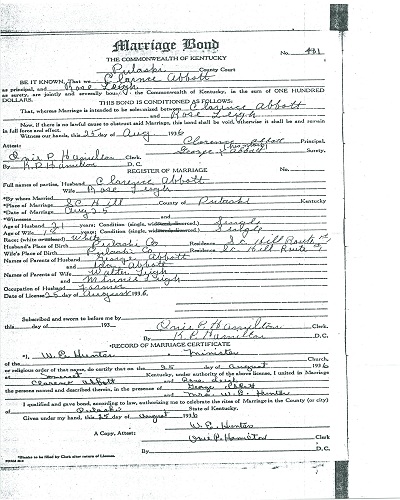 Marriage Bond
No. 481
THE COMMONWEALTH OF KENTUCKY
Pulaski County Court
BE IT KNOWN, That we Clarence Abbott
as principal, and Rose Leigh
as surety, are jointly and severally bound to the Commonwealth of Kentucky, in the sum of ONE HUNDRED
DOLLARS.
THIS BOND IS CONDITIONED AS FOLLOWS:
That, whereas Marriage is intended to be solemnized between Clarence Abbott
and Rose Leigh
Now, if there is no lawful cause to obstruct said Marriage, this bond shall be void, otherwise it shall be and remain
in full force and effect.
Witness our hands, this 25 day of Aug 1936
Attest: Clarence Abbott Principal,
George Abbott Surety.
Onie P. Hamilton Clerk
By K.P. Hamilton D.C.
REGISTER OF MARRIAGE No.
Full names of parties, Husband Clarence Abbott
Wife Rose Leigh
*By whom Married
*Place of Marriage So. Hill County of Pulaski Kentucky
*Date of Marriage Aug 25
*Witnesses
Age of Husband 21 years; Condition (single, widowed, divorced.) Single
Age of Wife 18 years; Condition (single, widowed, divorced.) Single
Race: White
Husband's Place of Birth Pulaski Co Residence So. Hill Route
Wife's Place of Birth Pulaski Co Residence So. Hill Route
Names of Parents of Husband George Abbott
and Abbott
Names of Parents of Wife Walter Leigh
and Minnie Leigh
Occupation of Husband Farmer
Date of License 25 day of August 1936.
Subscribed and sworn to before me by
this day of 193 Onie P. Hamilton Clerk.
K.P. Hamilton D.C.
*RECORD OF MARRIAGE CERTIFICATE
*I, W. E. Hunter Minister
of the Church,
or religious order of that name, do certify that on the 25 day of August 1936
at Somerset Kentucky, under authority of the above license, I united in Marriage
Clarence Abbott and Rose Leigh
the persons named and described therein, in the presence of George Abbott
and Mrs. W. E. Hunter
I qualified and gave bond, according to law, authorizing me to celebrate the rites of Marriage in the County (or city)
of Pulaski State of Kentucky.
Given under my hand, this 25 day of August 1936
W. E. Hunter
A Copy, Attest: Onie P. Hamilton Clerk
By D.C.
*Blanks to be filled by Clerk after return of License.